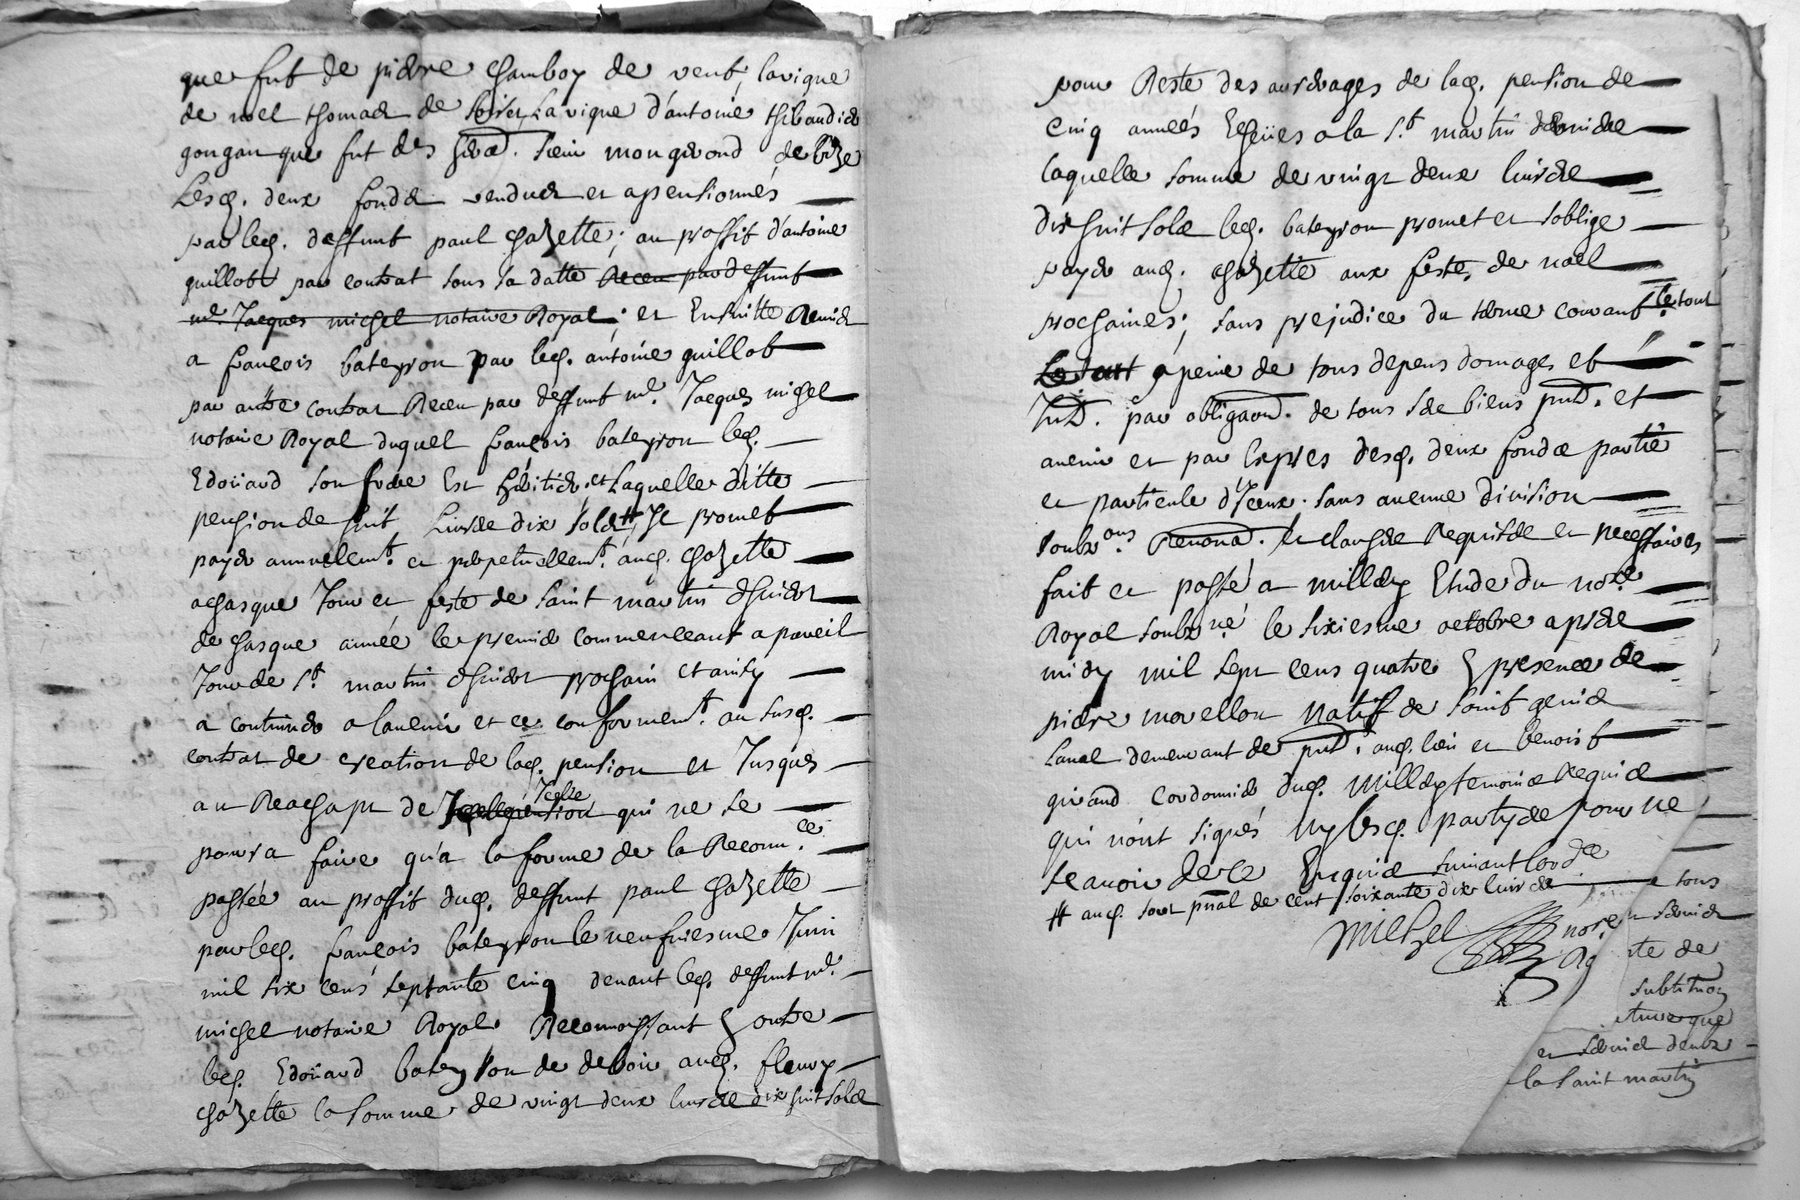 que fut de pierre Chamboy de vent, la vigne
de noel thomas de soir, La vigne d'antoine thibaudier
gougan que fut des hered. sieur mongirond de bize
Lesd. deux fonds vendus et apensionnés
par led. deffunt paul Chazette; au proffit d'antoine
guillot par contrat sous sa datte Receu par deffunt
me. Jacques michel notaire Royal; et Ensuitte Remis
a françois bateyron par led. antoine guillot
par autre contrat Receu par deffunt me. Jacques michel
notaire Royal duquel françois bateyron led.
Edoüard son frere Est heritier, et Laquelle ditte
pension de huit Livres dix sols # Il promet
payer annuellemt. et perpetuellemt. aud. Chazette
achasque Jour et feste de saint martin d'hiver
de chasque année le premier commencant a pareil
Jour de st. martin d'hiver prochain et ainsy
a continuer a lauenir et ce conformemt. au susd.
contrat de creation de lad. pension et Jusques
au Reachapt de Icelle pension Icelle qui ne se
pourra faire qu'a la forme de la Reconn.ce
passée au proffit dud. deffunt paul Chazette
par led. françois bateyron le neufviesme Juin
mil six cens septante cinq devant led. deffunt me.
michel notaire Royal Reconnoissant En outre
led. Edoüard bateyron de devoir aud. fleury
Chazette la somme de vingt deux livres dix huit sols
pour Reste des arrerages de lad. pension de
cinq années Echeües a la st. martin derniere
laquelle somme de vingt deux livres
dix huit sols led. bateyron promet et soblige
payer aud. Chazette aux feste de noel
prochaines; sans prejudice du terme courant, le tout
Le tout a peine de tous depens domages et
Intd. par obligaon. de tous ses biens pnt. et
auenir et par Expres desd. deux fonds partie
et particule d'Iceux. sans aucune division
soubz ons. Renond. et clauses Requises et necessaires
fait et passé a millery Etude du nore.
Royal soubz né le sixiesme octobre apres
midy mil sept cens quatre En presence de
pierre morellon natif de saint genis
Laual demeurant de pnt. aud. lieu et benoist
giraud cordonnier dud. millery temoins Requis
qui n'ont signés ny lesd. partyes pour ne
scauoir de ce Enquis suivant lorde
# aud. sort pnal de cent soixante dix livres
michel nore
e tous
te de
subtitud
et dernier deux
la saint martin